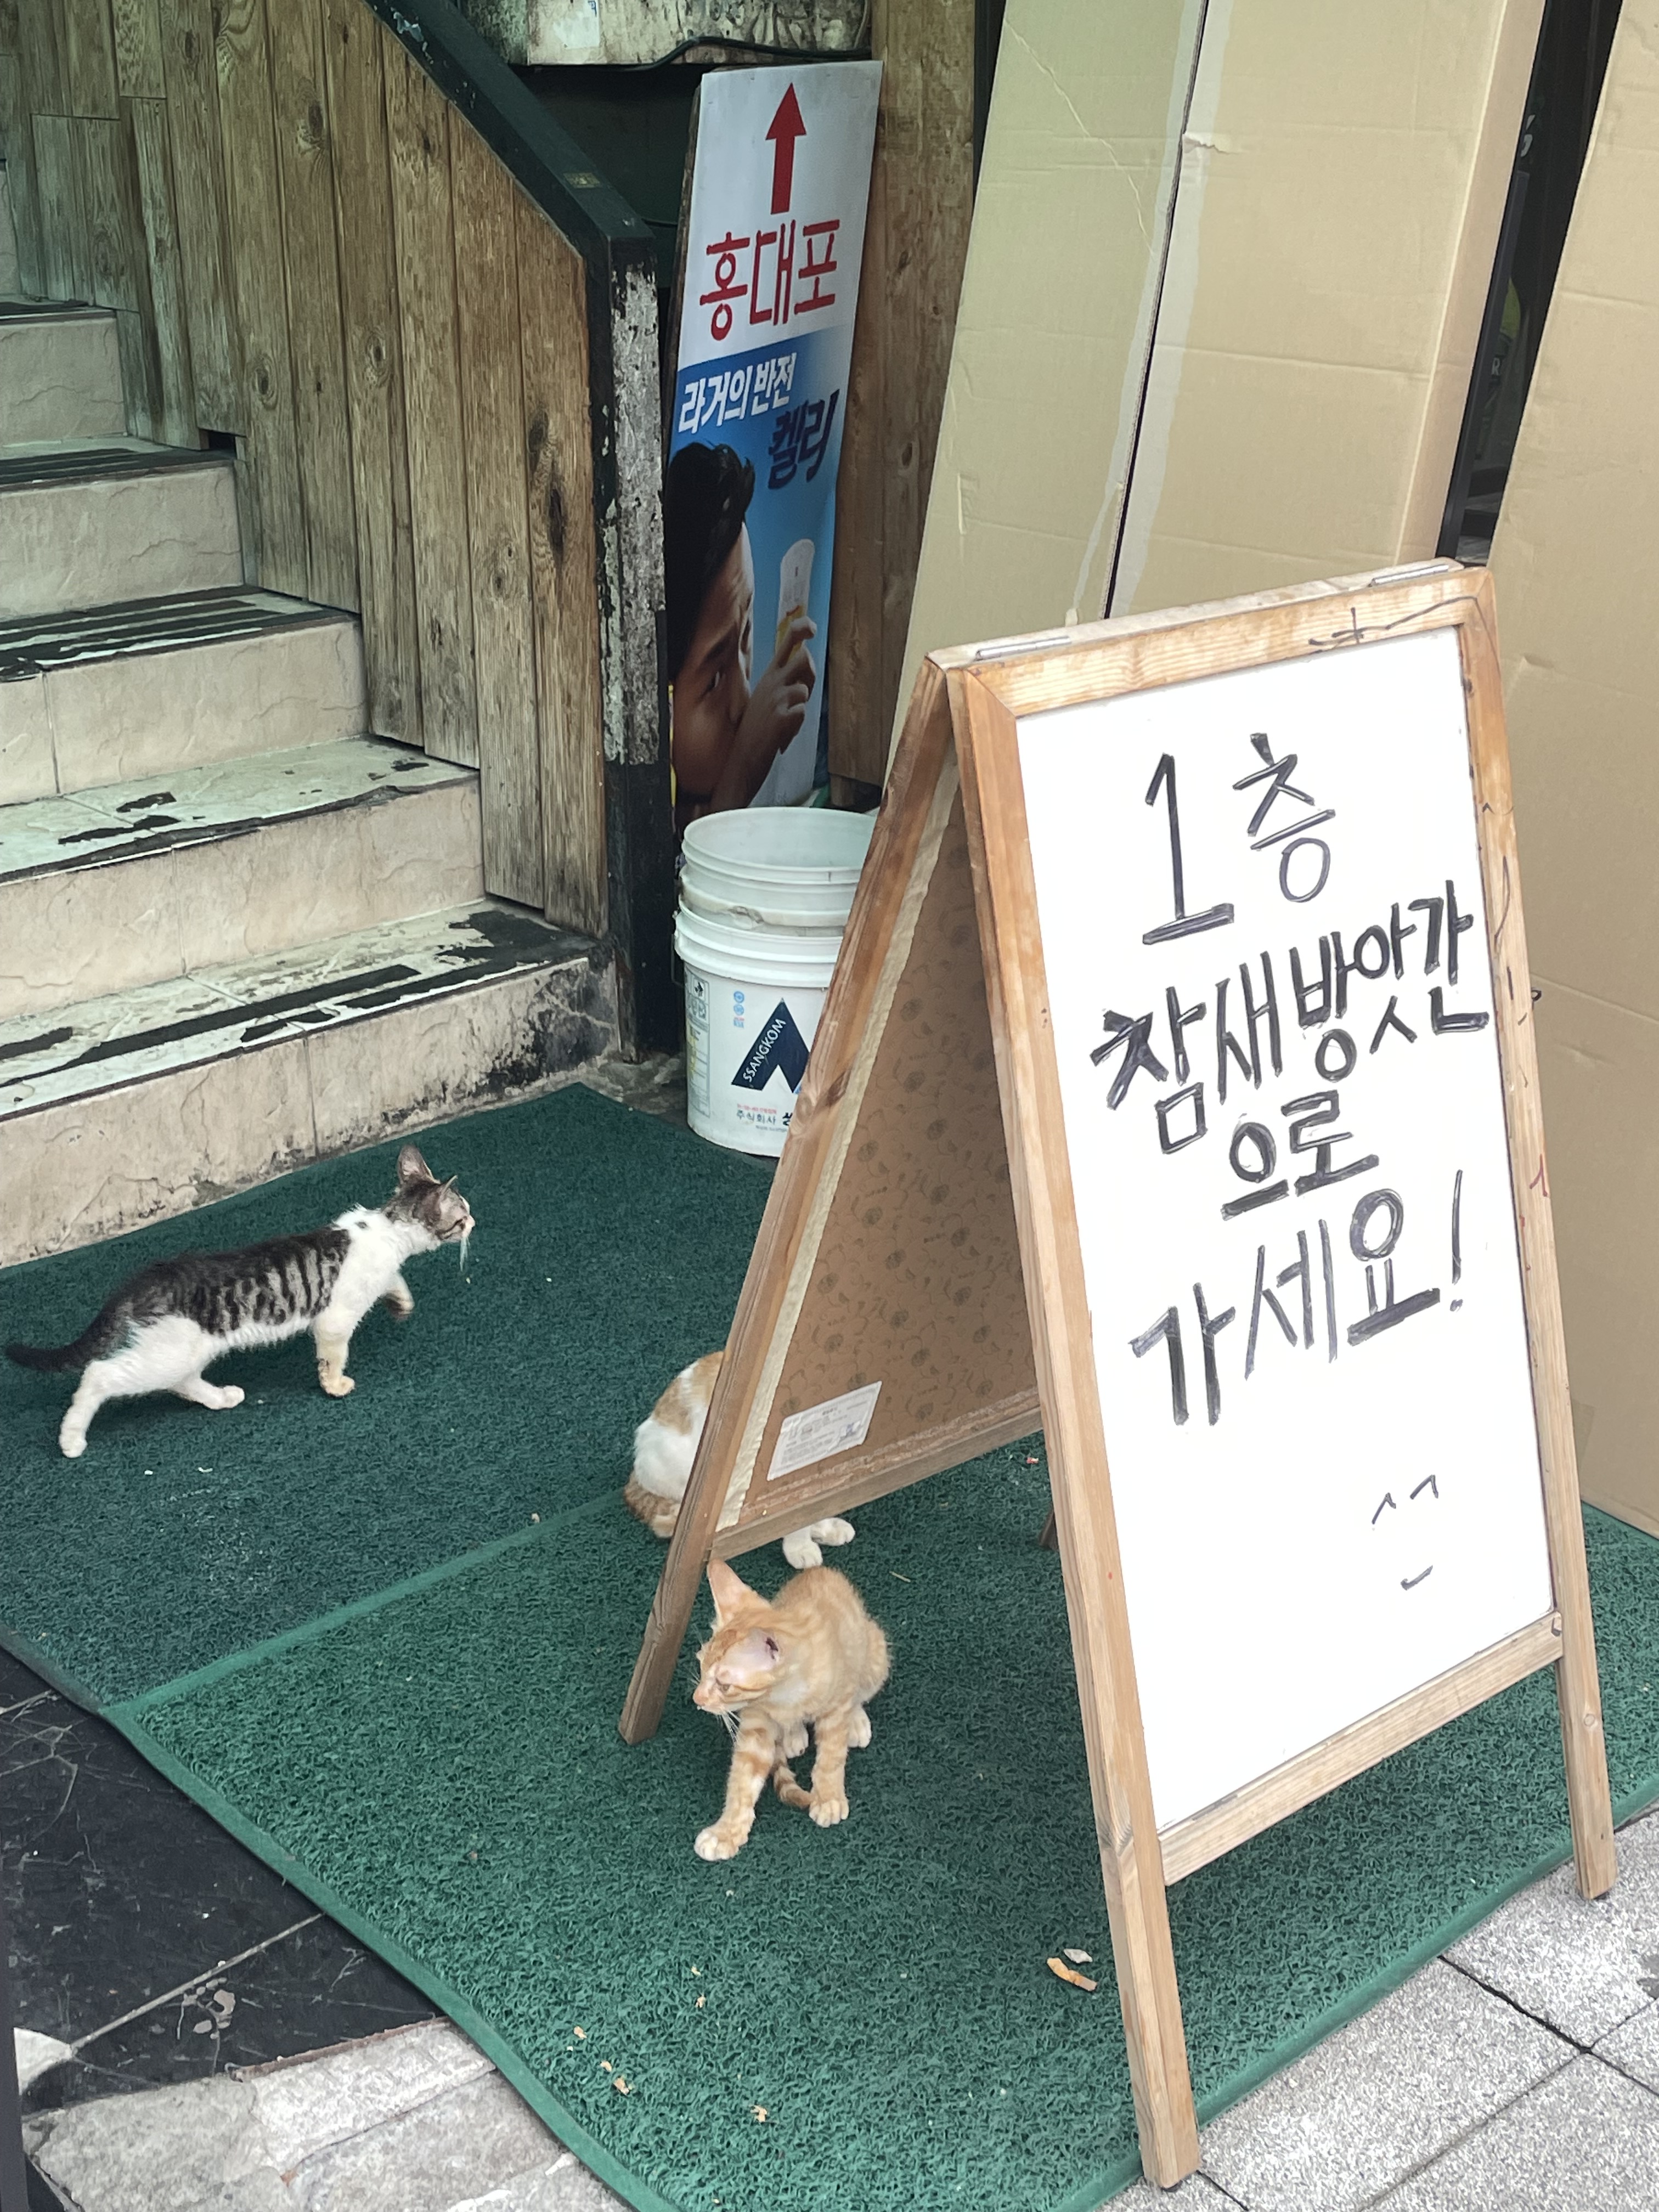 홍대포
라거의 반전
켈리
SSANGKOM
주식회사
1층
참새방앗간
으로
가세요!